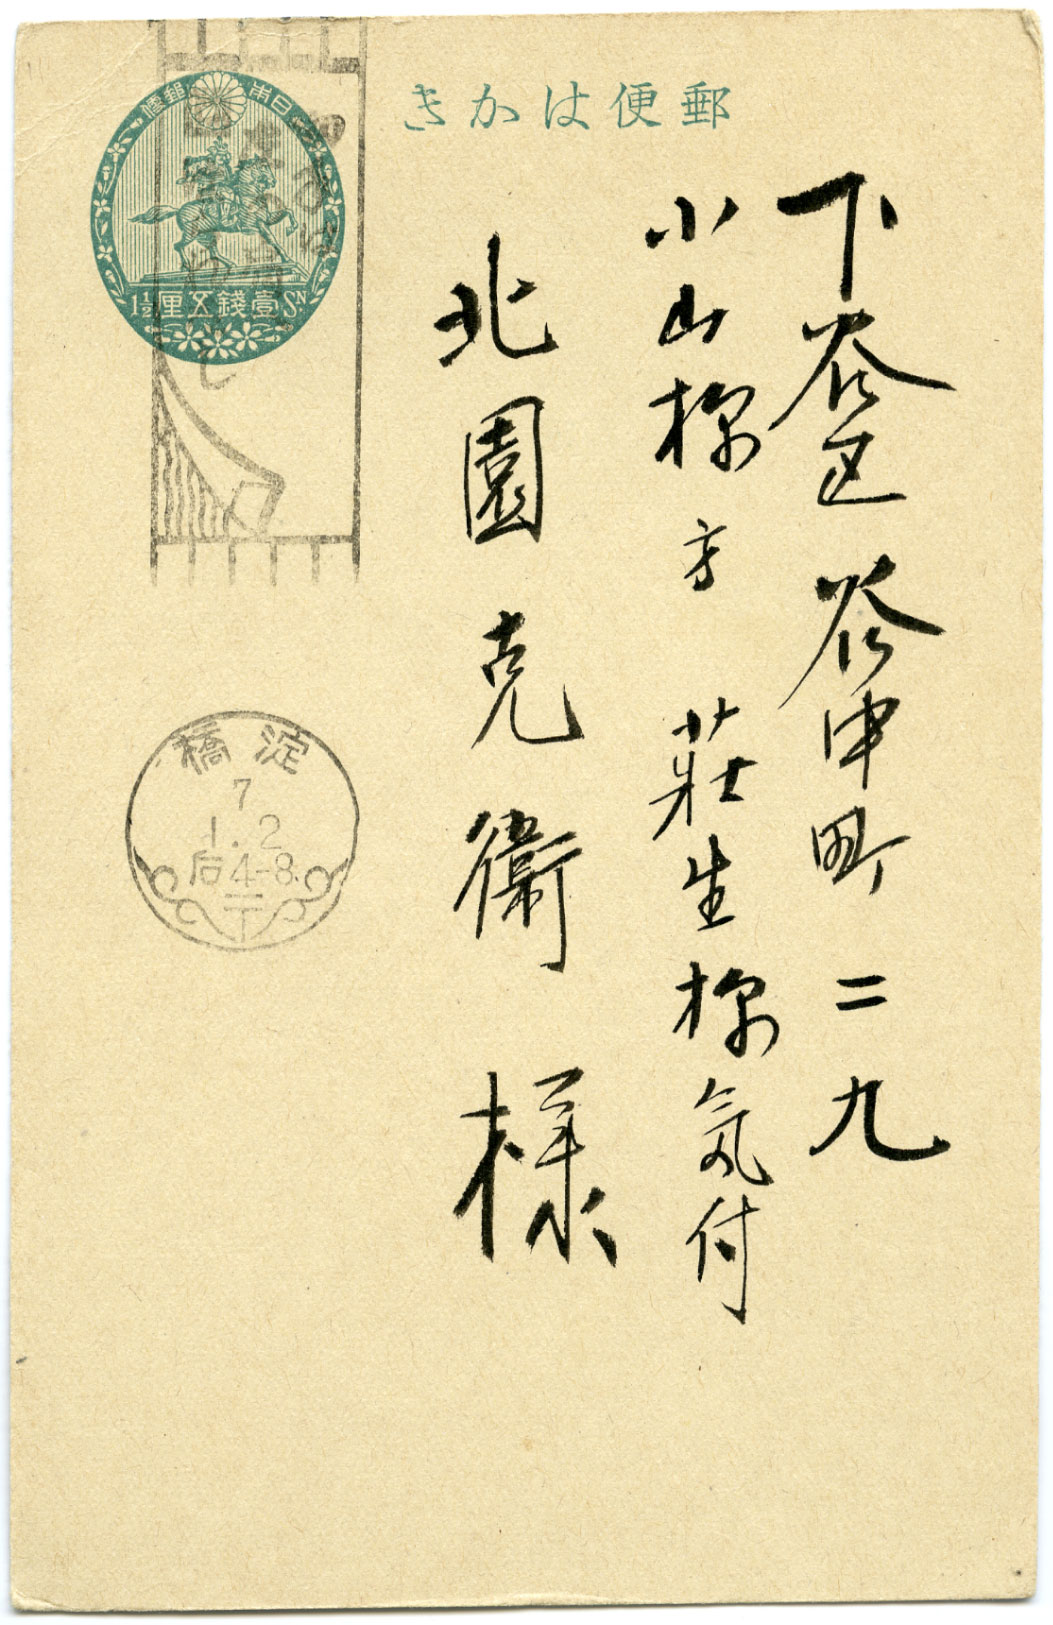 郵便はかき
日本郵便
壹錢五厘
1½ Sn
下谷区谷中町二九
小山様方 莊生様気付
北園克衛様
淀橋
7
1.2
后4-8